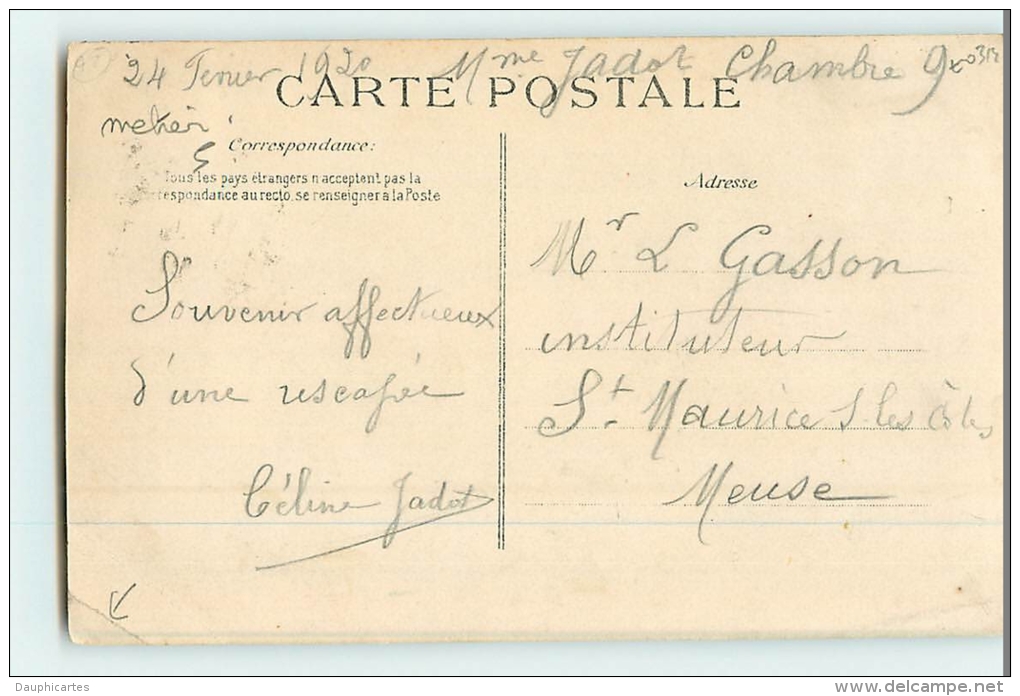 24 Fevrier 1920 Mme Jadot Chambre 9
CARTE POSTALE
metier
Correspondance:
Tous les pays étrangers n'acceptent pas la
respondance au recto, se renseigner à la Poste
Adresse
Souvenir affectueux
d'une rescapée
Céline Jadot
Mr L Gasson
instituteur
St. Maurice s les Côtes
Meuse
Dauphicartes
www.delcampe.net